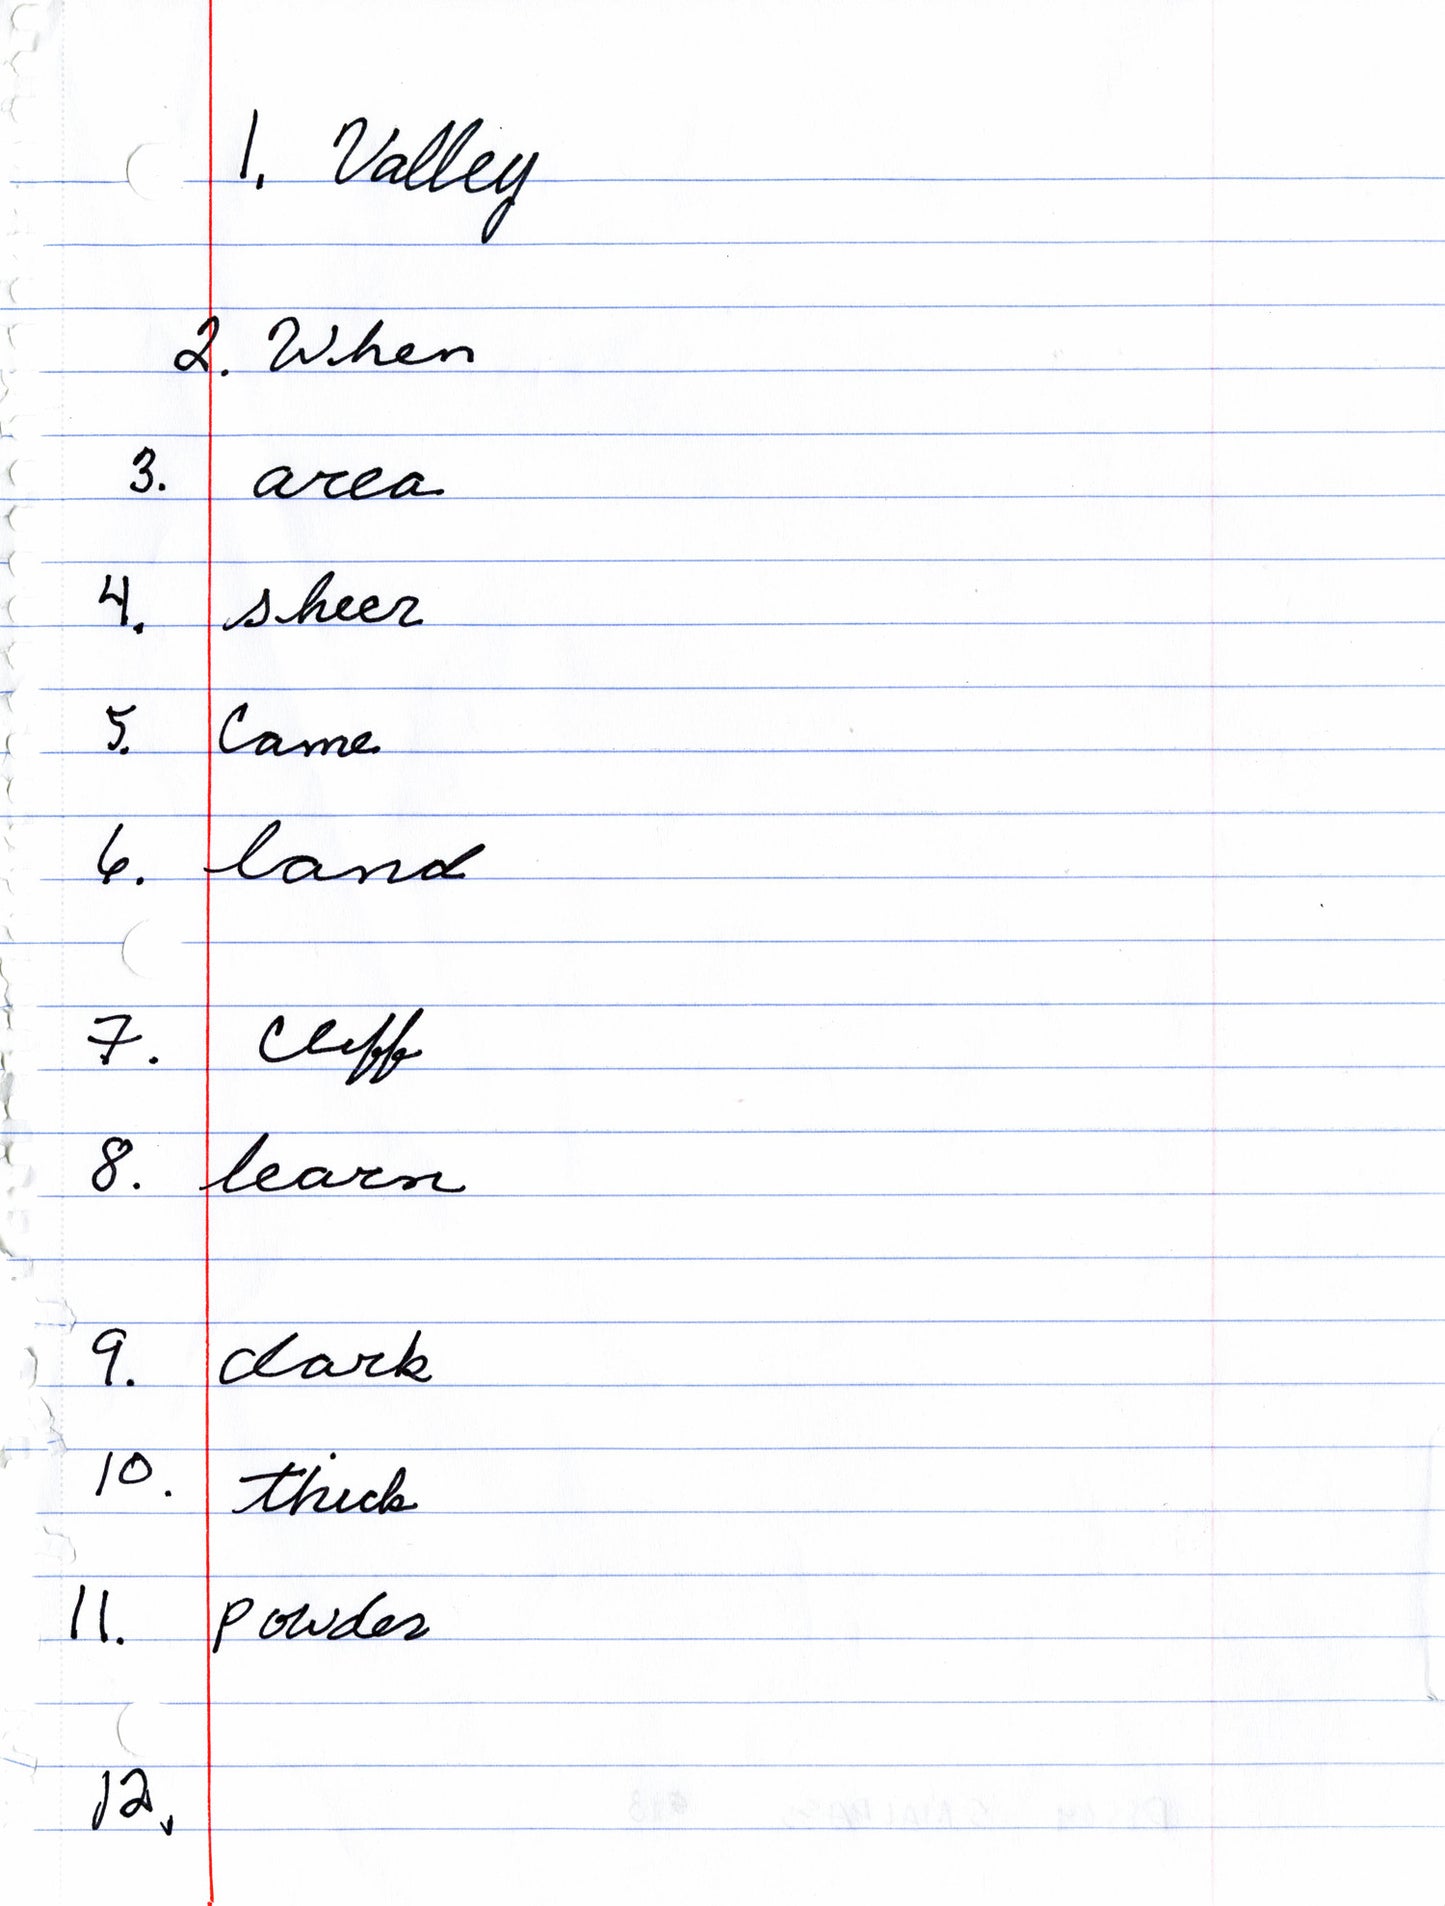 1. Valley
2. When
3. area
4. sheer
5. Came
6. land
7. Cliff
8. learn
9. dark
10. thick
11. powder
12.